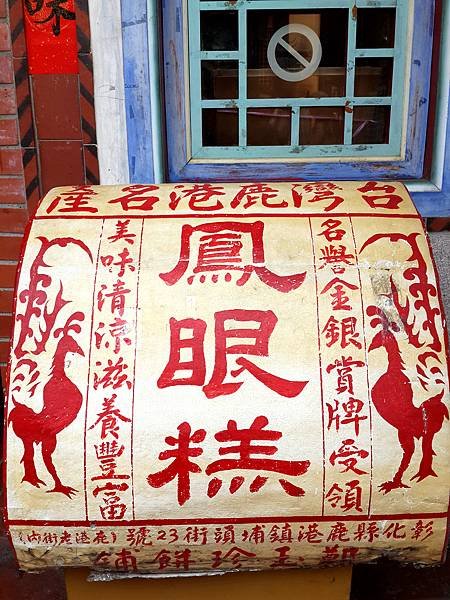 台灣鹿港名產
名譽金銀賞牌受領
鳳眼糕
美味清涼滋養豐富
彰化縣鹿港鎮埔頭街23號(鹿港老街內)
鄭玉珍餅舖